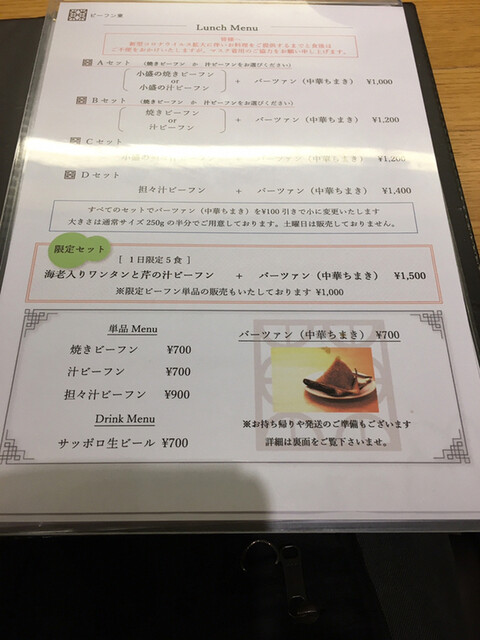 ビーフン東
Lunch Menu
皆様へ
新型コロナウイルス拡大に伴いお料理をご提供するまでと食後は
ご不便をおかけいたしますが、マスク着用のご協力をお願い申し上げます。
Aセット (焼きビーフン か 汁ビーフンをお選びください)
小盛の焼きビーフン
or
小盛の汁ビーフン
+ バーツァン(中華ちまき) ¥1,000
Bセット (焼きビーフン か 汁ビーフンをお選びください)
焼きビーフン
or
汁ビーフン
+ バーツァン(中華ちまき) ¥1,200
Cセット
小盛の + バーツァン(中華ちまき) ¥1,200
Dセット
担々汁ビーフン + バーツァン(中華ちまき) ¥1,400
すべてのセットでバーツァン(中華ちまき)を¥100引きで小に変更いたします
大きさは通常サイズ250gの半分でご用意しております。土曜日は販売しておりません。
限定セット
[ 1日限定5食 ]
海老入りワンタンと芹の汁ビーフン + バーツァン(中華ちまき) ¥1,500
※限定ビーフン単品の販売もいたしております ¥1,000
単品 Menu
焼きビーフン ¥700
汁ビーフン ¥700
担々汁ビーフン ¥900
Drink Menu
サッポロ生ビール ¥700
バーツァン(中華ちまき) ¥700
※お持ち帰りや発送のご準備もございます
詳細は裏面をご覧下さいませ。